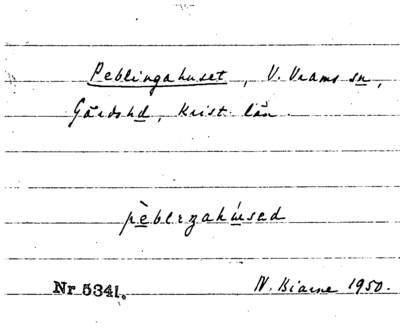 Peblingahuset, V. Vrams sn,
Gärds hd, Krist. län.
pèblızahúsad
Nr 5341. N. Bjarne 1950.